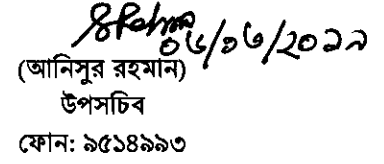 ০৬/০৬/২০১৯
(আনিসুর রহমান)
উপসচিব
ফোন: ৯৫১৪৯৯৩